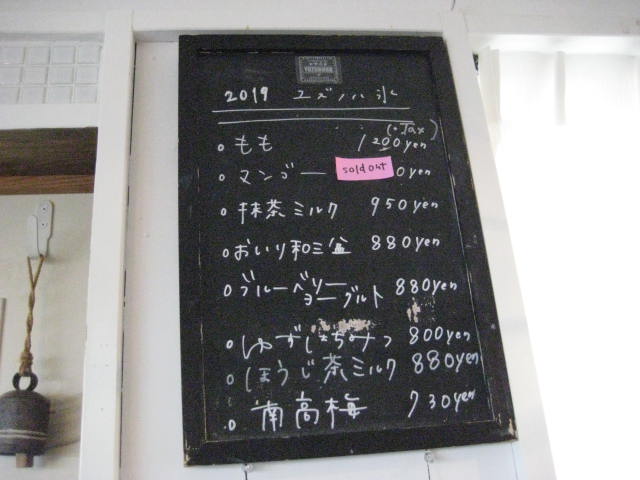 2019 ユズノハ氷
(+Tax)
○もも 1200yen
○マンゴー sold out 0yen
○抹茶ミルク 950yen
○おいり和三盆 880yen
○ブルーベリー
ヨーグルト 880yen
○ゆずはちみつ 800yen
○ほうじ茶ミルク 880yen
○南高梅 730yen